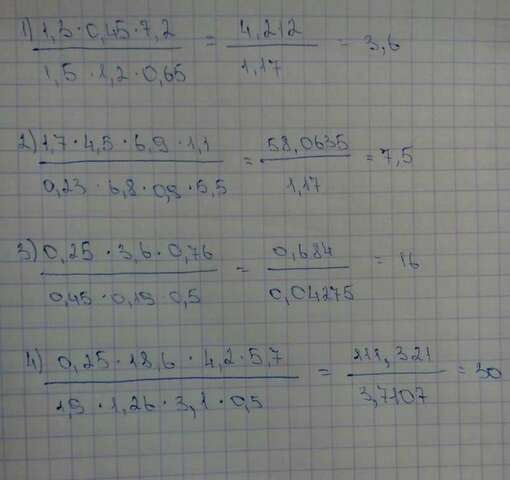 1) 1,3 · 0,45 · 7,2 / 1,5 · 1,2 · 0,65 = 4,212 / 1,17 = 3,6
2) 1,7 · 4,5 · 6,9 · 1,1 / 0,23 · 6,8 · 0,9 · 5,5 = 58,0635 / 1,17 = 7,5
3) 0,25 · 3,6 · 0,76 / 0,45 · 0,19 · 0,5 = 0,684 / 0,04275 = 16
4) 0,25 · 18,6 · 4,2 · 5,7 / 1,9 · 1,26 · 3,1 · 0,5 = 111,321 / 3,7107 = 30